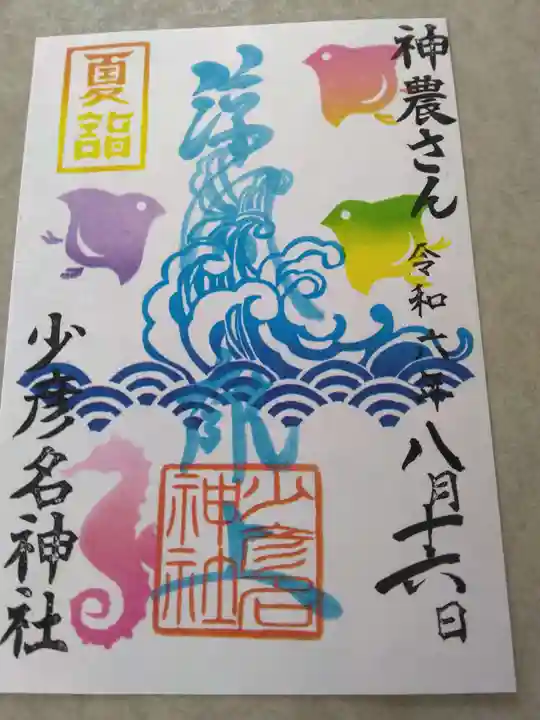 神農さん
令和六年八月十六日
夏詣
少彦名神社
少彦名
神社